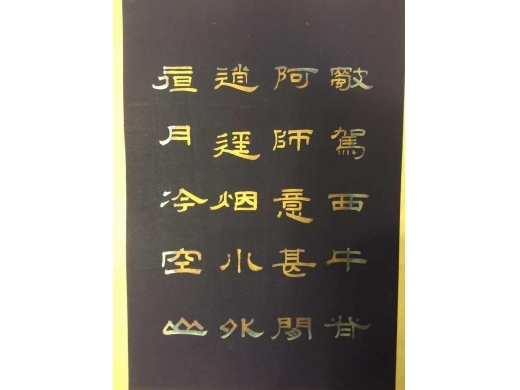 駕西牛背
阿師意甚閒
逍遥烟水外
月冷空山